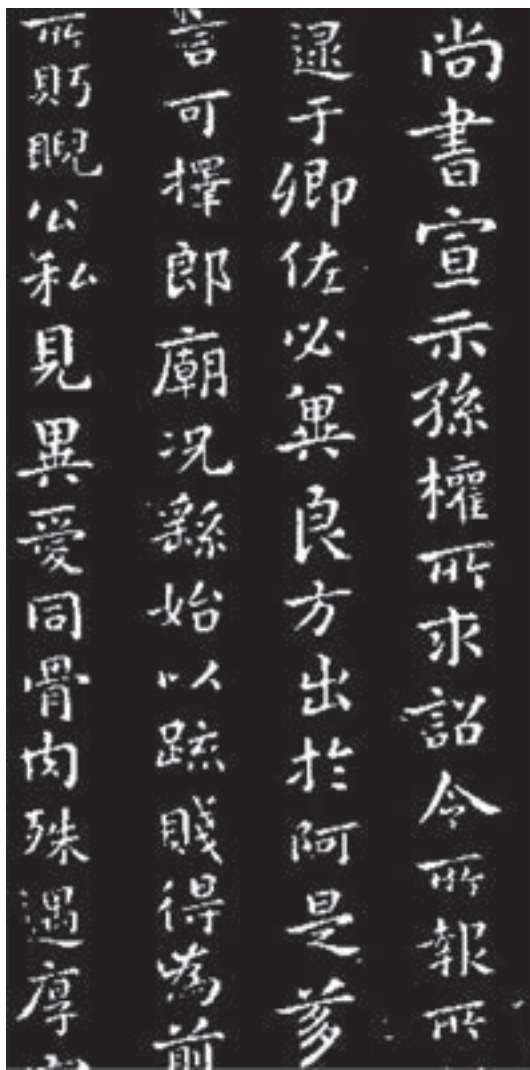 尚書宣示孫權所求詔令所報所
逮于卿佐必冀良方出於阿是芻
言可擇郎廟况繇始以疏賤得為前
所眄睨公私見異愛同骨肉殊遇厚